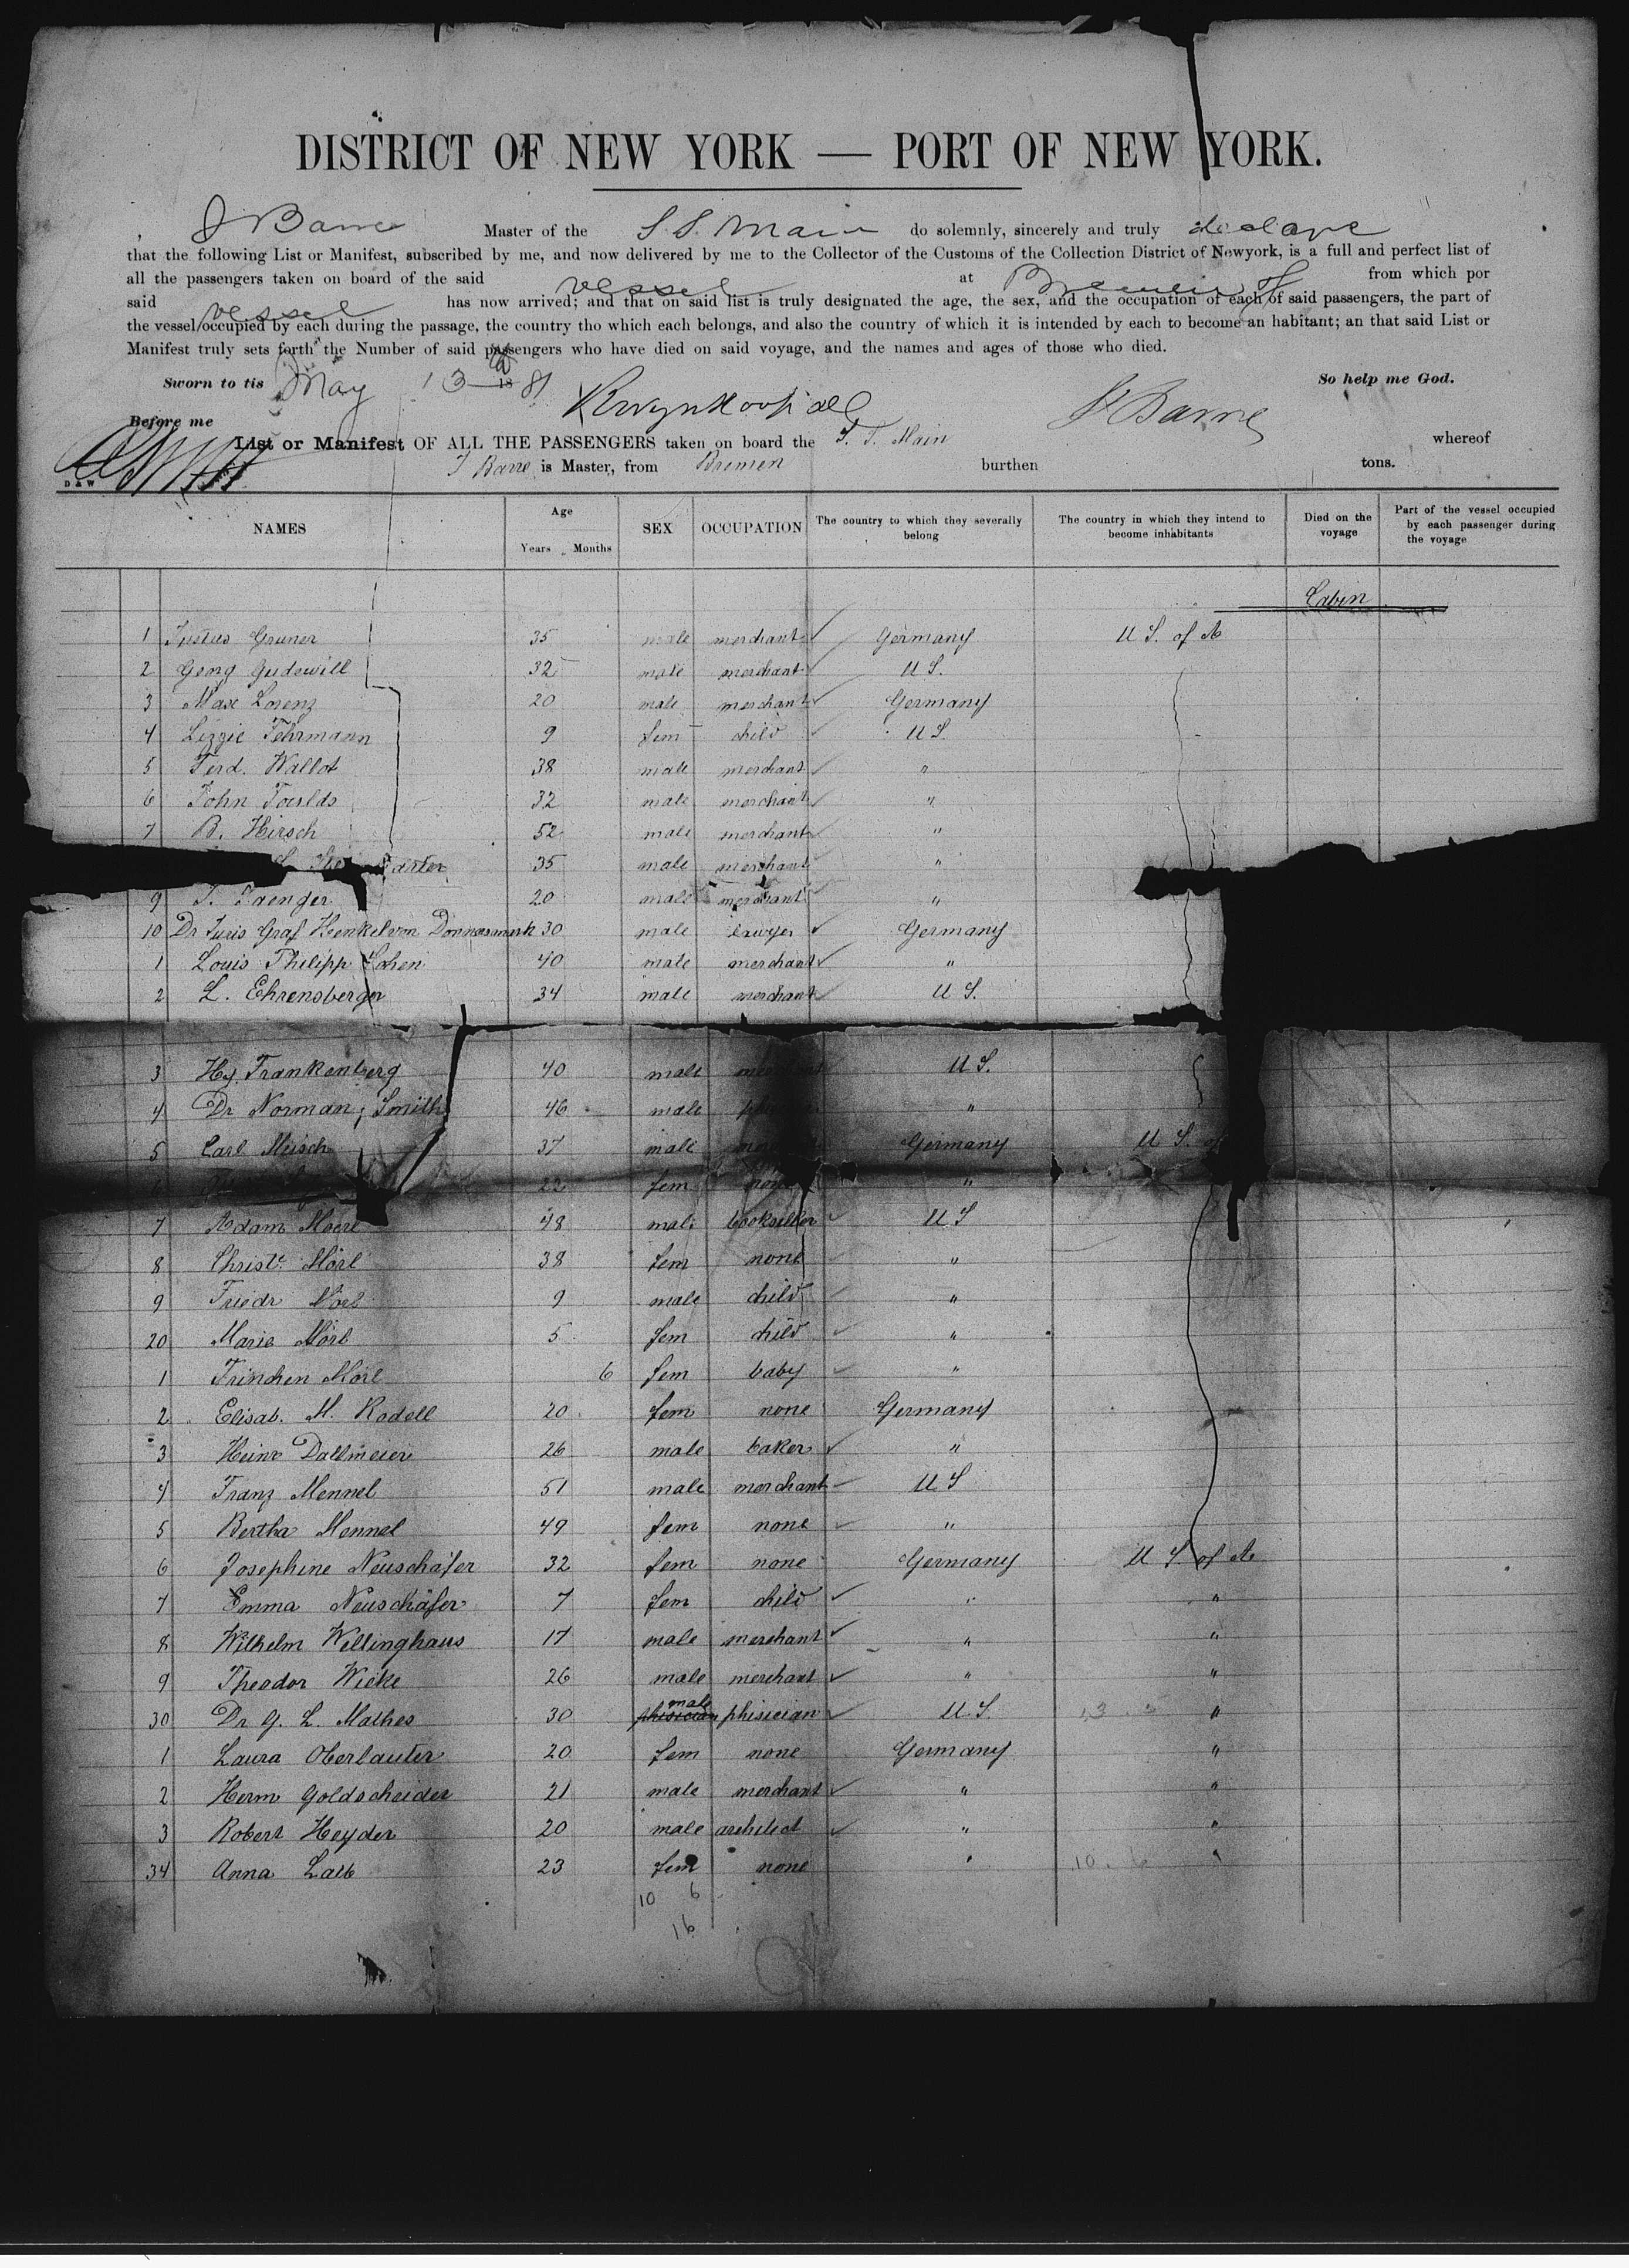 DISTRICT OF NEW YORK — PORT OF NEW YORK.
J Barre Master of the S. S. Main do solemnly, sincerely and truly declare
that the following List or Manifest, subscribed by me, and now delivered by me to the Collector of the Customs of the Collection District of Newyork, is a full and perfect list of
all the passengers taken on board of the said vessel at Bremen from which por
said vessel has now arrived; and that on said list is truly designated the age, the sex, and the occupation of each of said passengers, the part of
the vessel occupied by each during the passage, the country tho which each belongs, and also the country of which it is intended by each to become an habitant; an that said List or
Manifest truly sets forth the Number of said passengers who have died on said voyage, and the names and ages of those who died.
Sworn to tis May 13 18 81 So help me God.
Before me J Barre
List or Manifest OF ALL THE PASSENGERS taken on board the S. S. Main whereof
J Barre is Master, from Bremen burthen tons.
D & W
NAMES Age Years Months SEX OCCUPATION The country to which they severally belong The country in which they intend to become inhabitants Died on the voyage Part of the vessel occupied by each passenger during the voyage
Cabin
1 Justus Gruner 35 male merchant Germany U S. of A
2 Georg Gudewill 32 male merchant U S.
3 Max Lorenz 20 male merchant Germany
4 Lizzie Fehrmann 9 fem child U S.
5 Ferd. Wallot 38 male merchant "
6 John Foulds 32 male merchant "
7 B. Hirsch 52 male merchant "
35 male merchant "
9 J. Jaenger 20 male merchant "
10 Dr Juris Graf Henkel von Donnersmark 30 male lawyer Germany
1 Louis Philipp Cohen 40 male merchant "
2 L. Ehrensberger 34 male merchant U S.
3 Hy. Frankenberg 40 male U S.
4 Dr Norman, Smith 46 male "
5 Carl Meisch 37 male Germany U S. of
22 fem none "
7 Adam Moerl 48 male bookseller U S
8 Christe Mörl 38 fem none "
9 Friedr Mörl 9 male child "
20 Marie Mörl 5 fem child "
1 Trinchen Mörl 6 fem baby "
2 Elisab. M. Rodell 20 fem none Germany
3 Heinr Dallmeier 26 male baker "
4 Franz Mennel 51 male merchant U S
5 Bertha Mennel 49 fem none "
6 Josephine Neuschäfer 32 fem none Germany U S. of A
7 Emma Neuschäfer 7 fem child " "
8 Wilhelm Wellinghaus 17 male merchant " "
9 Theodor Wicke 26 male merchant " "
30 Dr G. L. Mathes 30 phisician male phisician U. S. "
1 Laura Oberlauter 20 fem none Germany "
2 Herm Goldscheider 21 male merchant " "
3 Robert Heyder 20 male architect " "
34 Anna Lalb 23 fem none " "
10 6
16